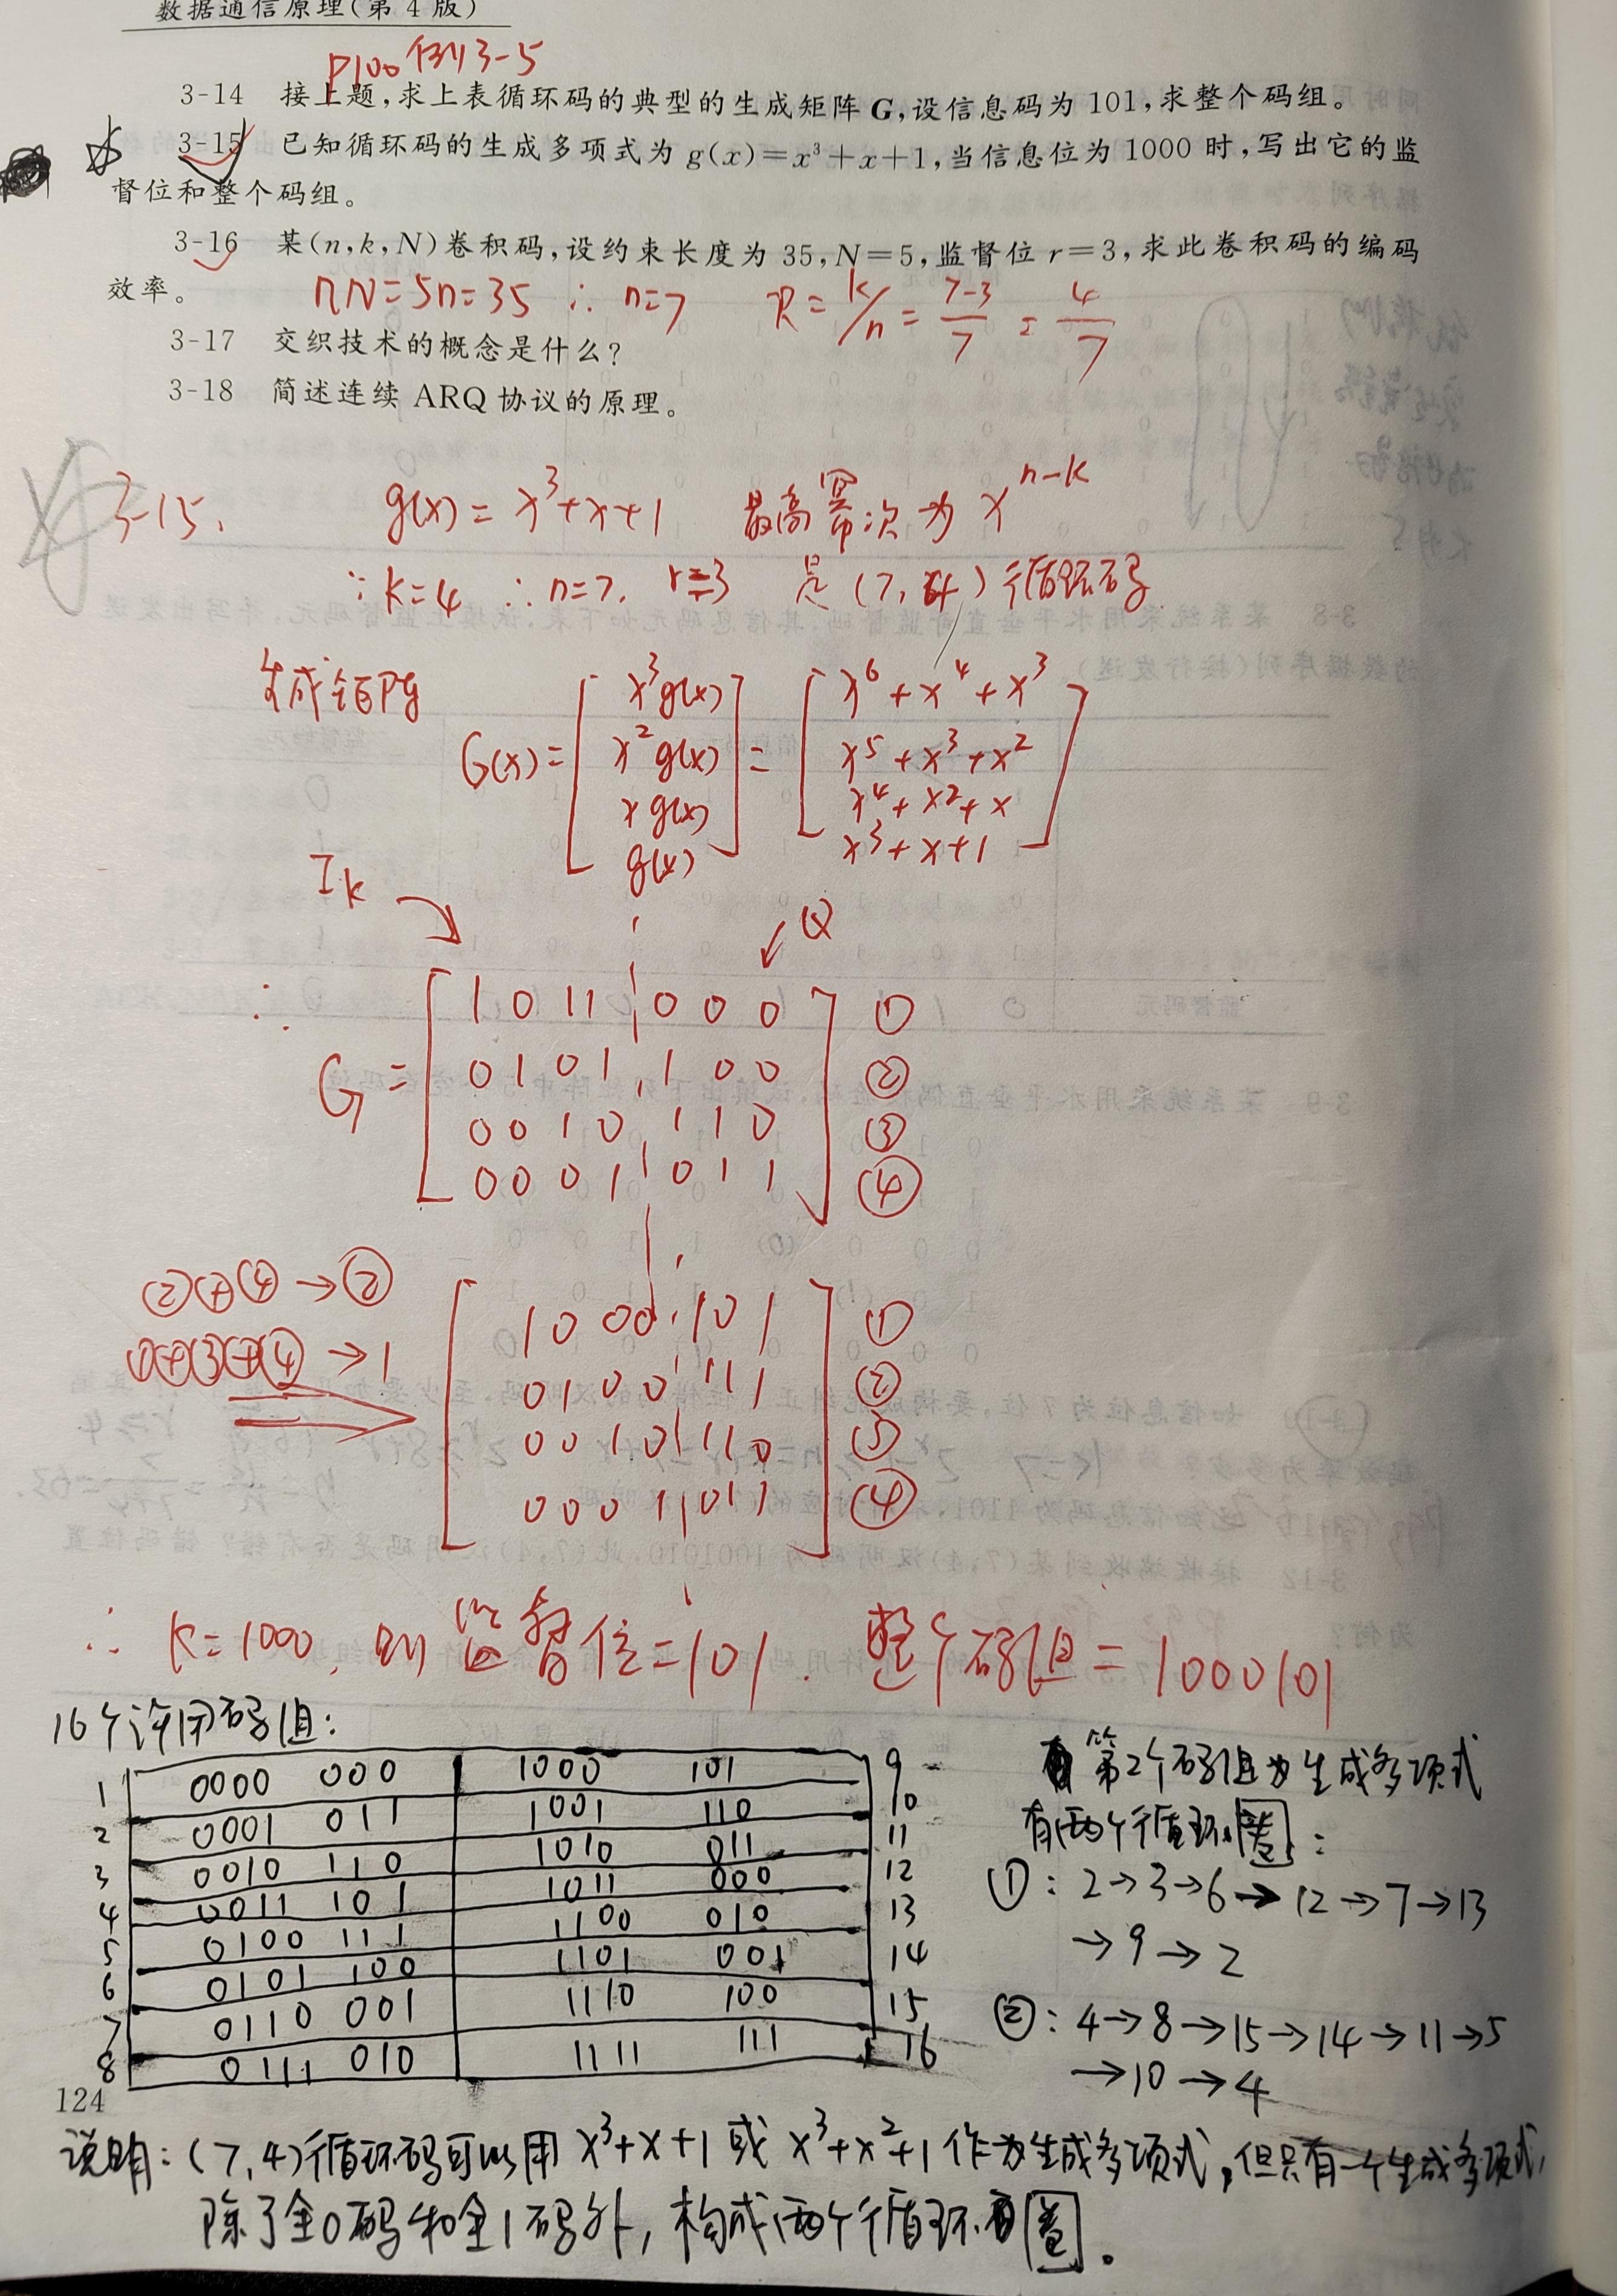 数据通信原理(第4版)
P100 例3-5
3-14 接上题,求上表循环码的典型的生成矩阵G,设信息码为101,求整个码组。
3-15 已知循环码的生成多项式为g(x)=x³+x+1,当信息位为1000时,写出它的监
督位和整个码组。
3-16 某(n,k,N)卷积码,设约束长度为35,N=5,监督位r=3,求此卷积码的编码
效率。 nN=5n=35 ∴ n=7 R=k/n=(7-3)/7=4/7
3-17 交织技术的概念是什么?
3-18 简述连续ARQ协议的原理。
3-15. g(x)=x³+x+1 最高幂次为x^(n-k)
∵k=4 ∴n=7, r=3 是(7,4)循环码
生成矩阵
G(x)= [ x³g(x) ] = [ x⁶+x⁴+x³ ]
x²g(x) x⁵+x³+x²
xg(x) x⁴+x²+x
g(x) x³+x+1
I_k Q
∴
1 0 1 1 0 0 0 ①
G= 0 1 0 1 1 0 0 ②
0 0 1 0 1 1 0 ③
0 0 0 1 0 1 1 ④
②+④→② 1 0 0 0 1 0 1 ①
①+③+④→1 0 1 0 0 1 1 1 ②
0 0 1 0 1 1 0 ③
0 0 0 1 0 1 1 ④
∴ k=1000, 则监督位=101. 整个码组=1000101
16个许用码组:
1 0000 000 1000 101 9
2 0001 011 1001 110 10
3 0010 110 1010 011 11
4 0011 101 1011 000 12
5 0100 111 1100 010 13
6 0101 100 1101 001 14
7 0110 001 1110 100 15
8 0111 010 1111 111 16
第2个码组为生成多项式
有两个循环圈:
①: 2→3→6→12→7→13
→9→2
②: 4→8→15→14→11→5
→10→4
124
说明:(7,4)循环码可以用x³+x+1或x³+x²+1作为生成多项式,但只有一个生成多项式,
除了全0码和全1码外,构成两个循环圈。